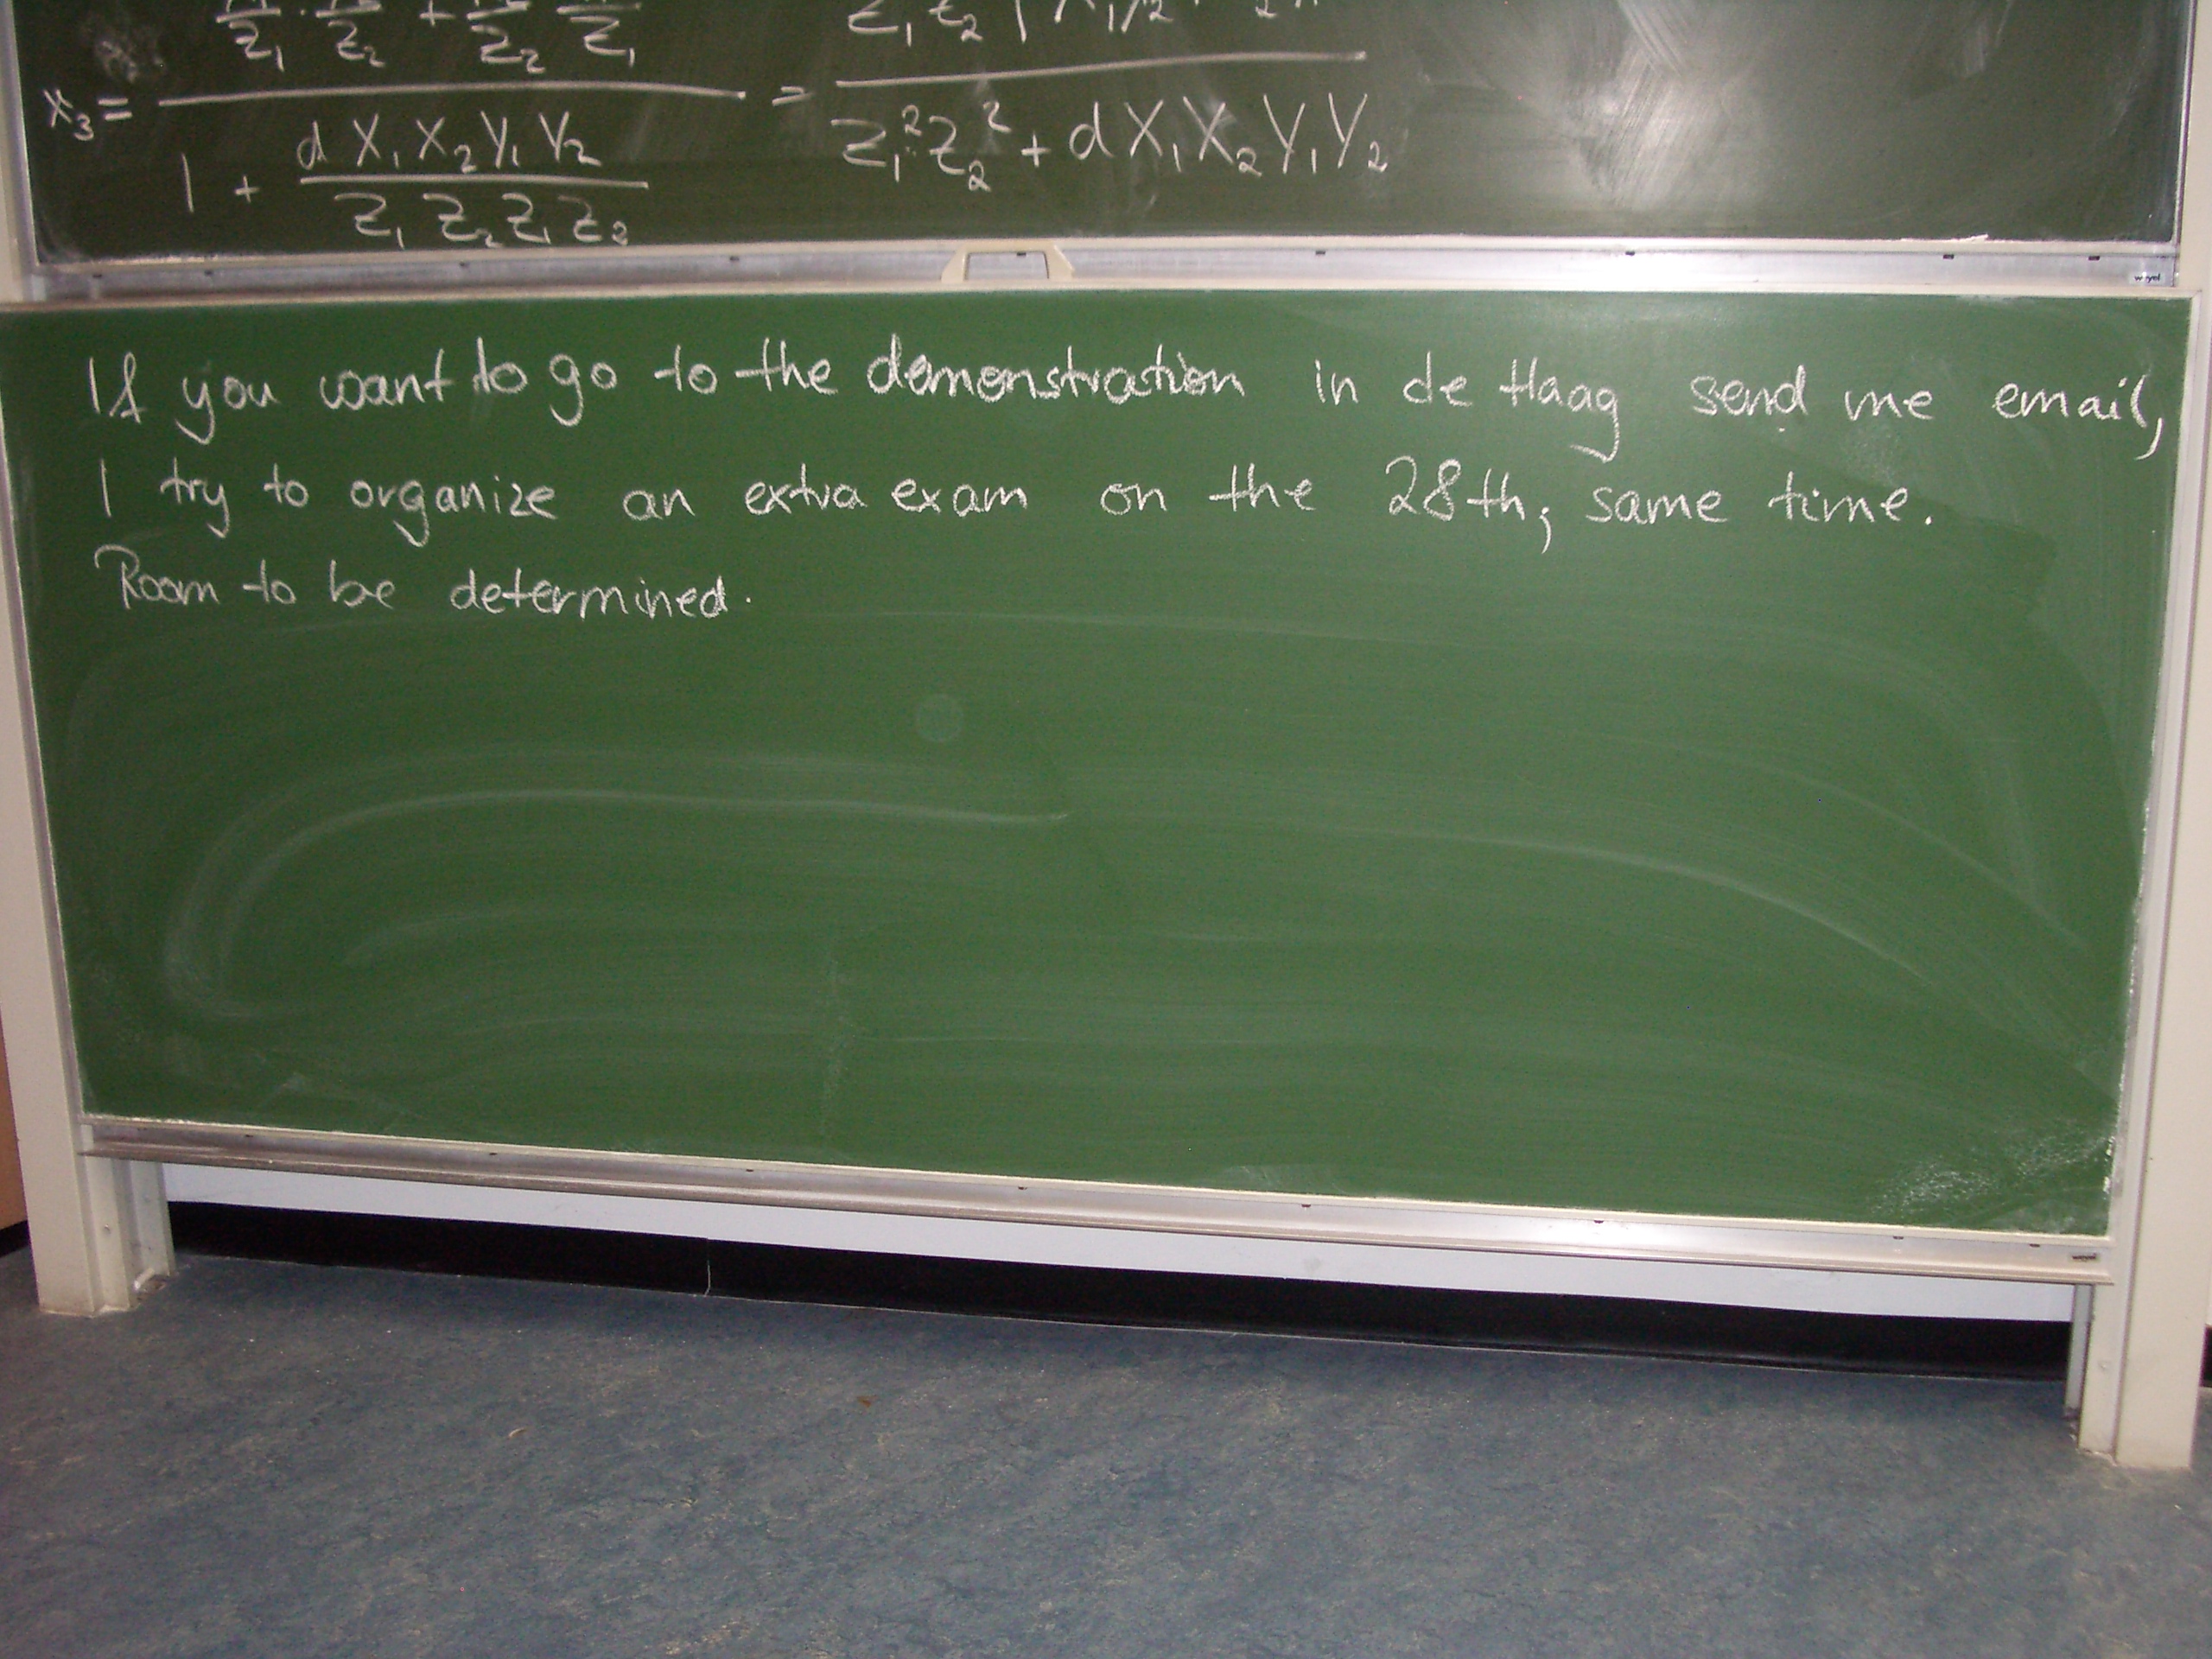 x₃ = 1 + d X₁ X₂ Y₁ Y₂ / Z₁ Z₂ Z₁ Z₂ = Z₁² Z₂² + d X₁ X₂ Y₁ Y₂
weyel
If you want to go to the demonstration in de Haag send me email,
I try to organize an extra exam on the 28th, same time.
Room to be determined.
weyel